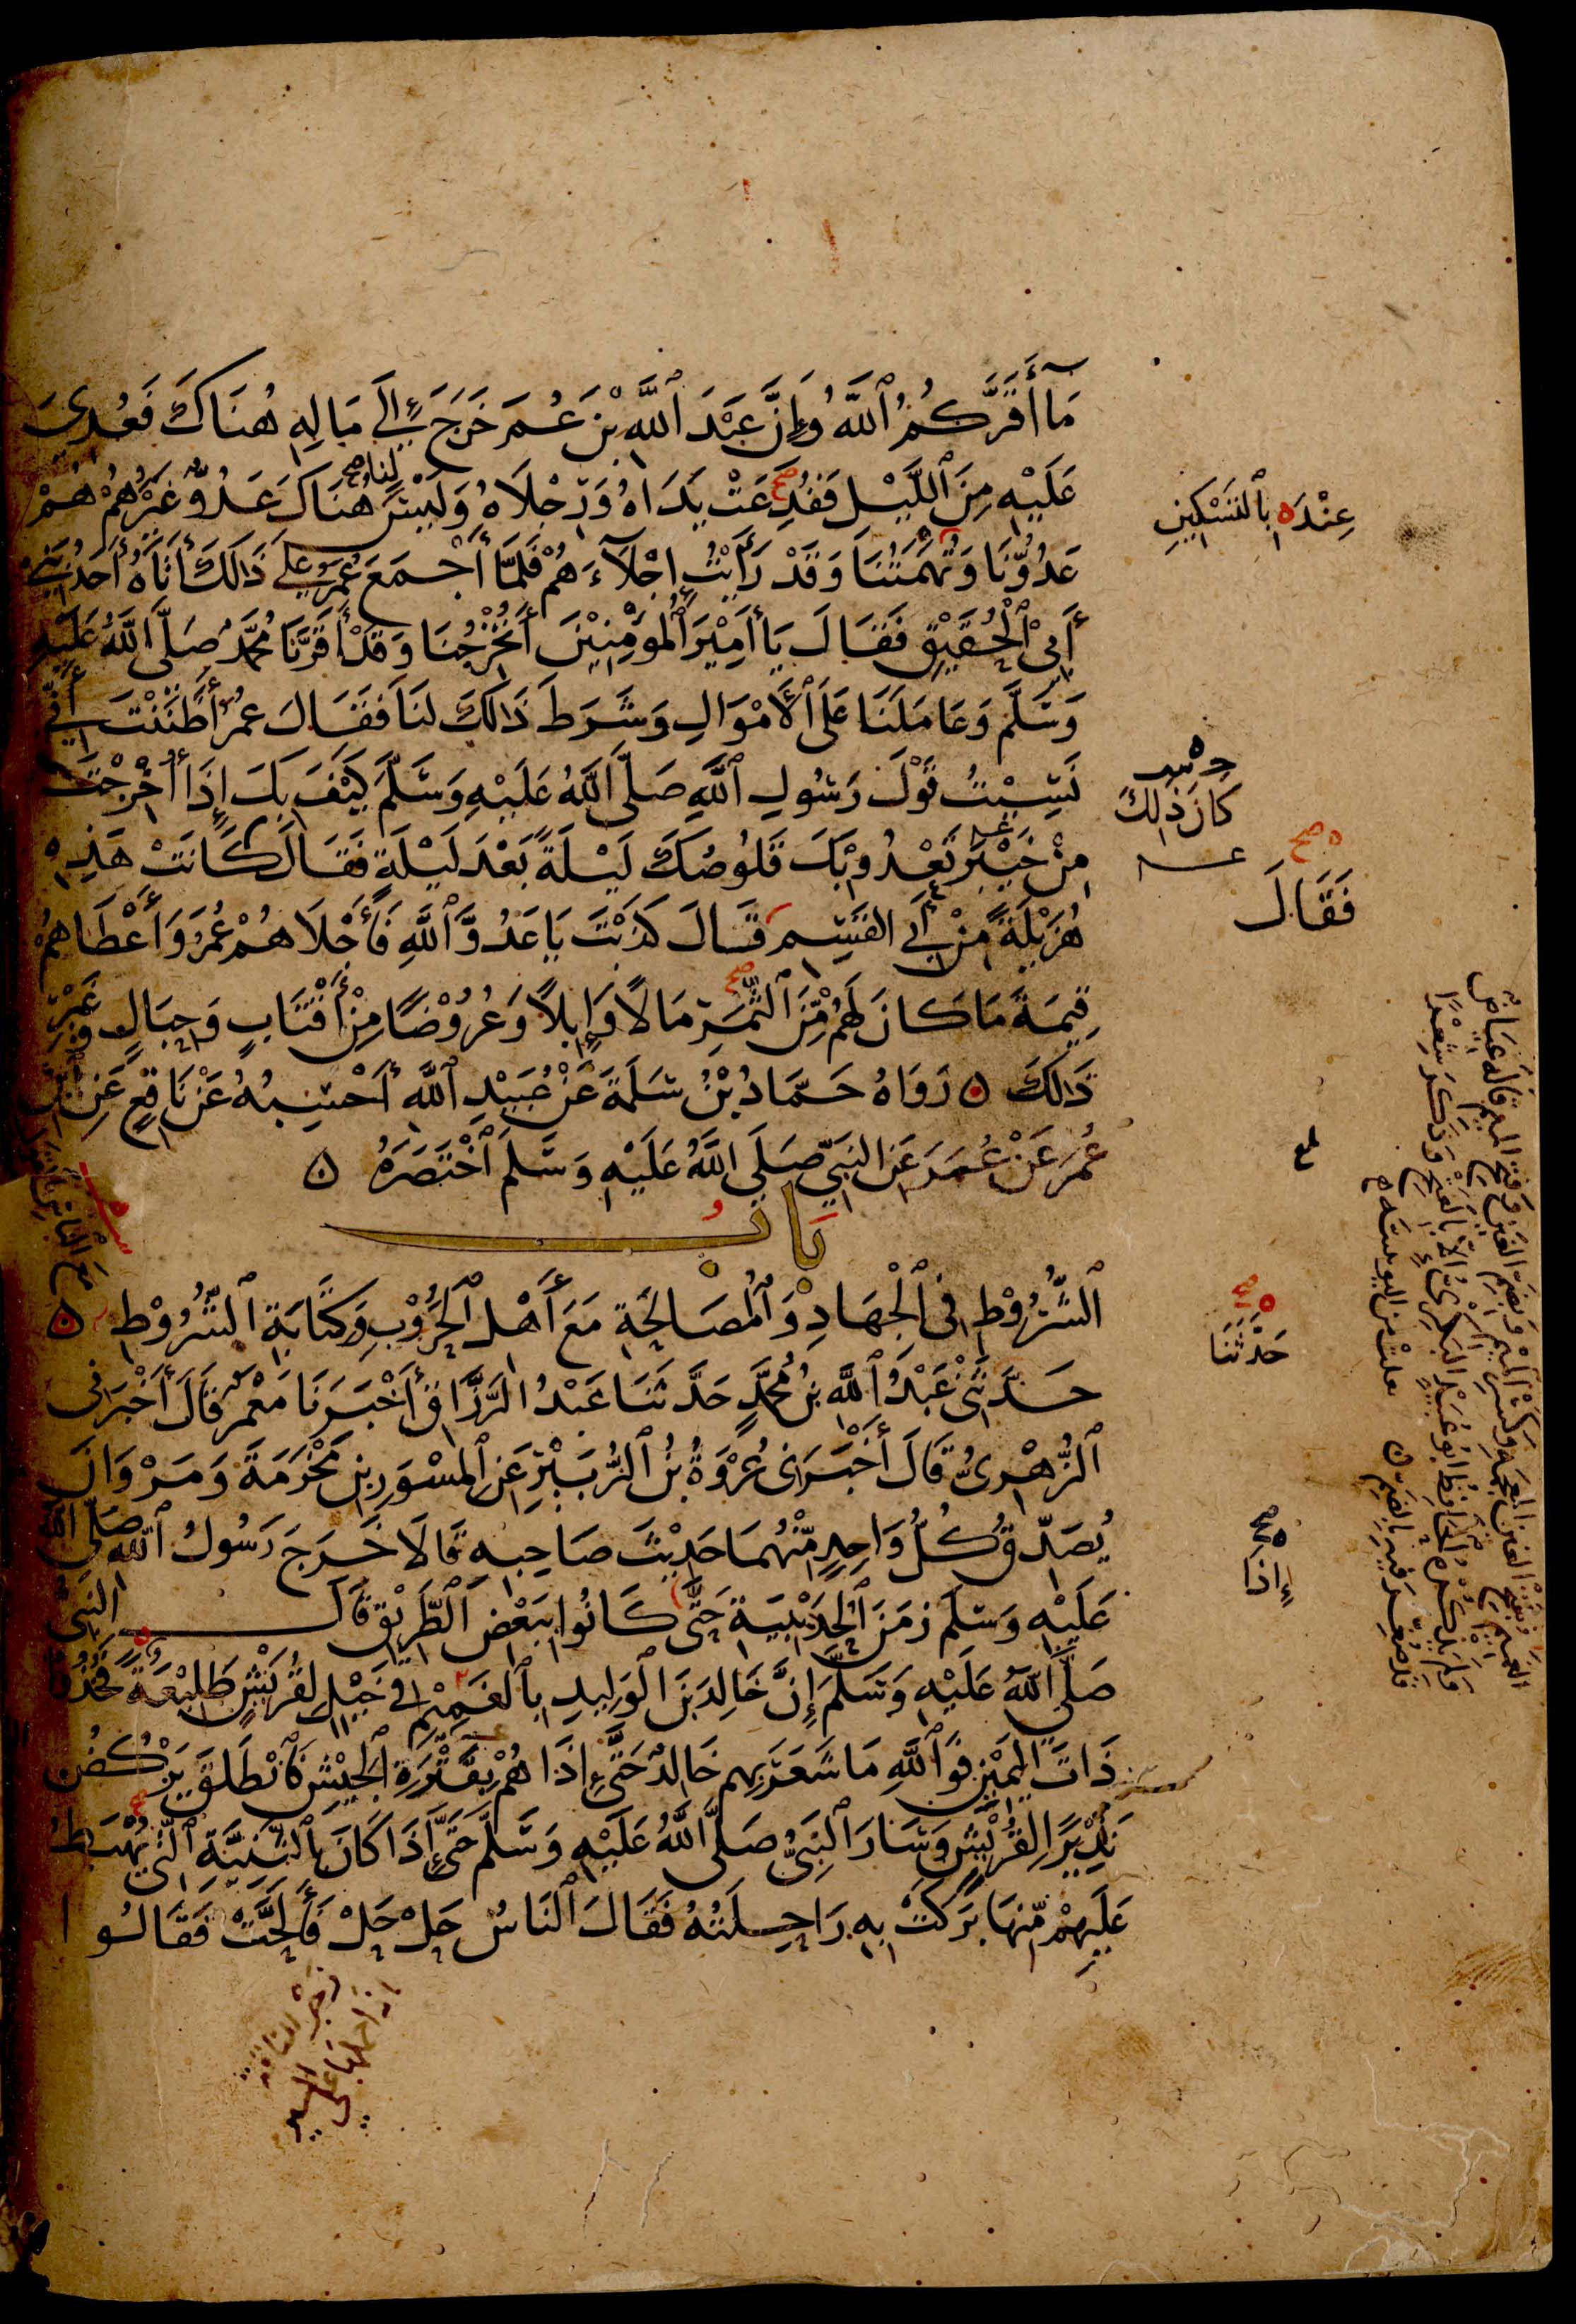 مَا أَقَرَّكُمُ ٱللَّهُ وَإِنَّ عَبْدَ ٱللَّهِ بْنَ عُمَرَ خَرَجَ إِلَى مَالِهِ هُنَاكَ فَعُدِيَ
عَلَيْهِ مِنَ ٱللَّيْلِ فَفُدِعَتْ يَدَاهُ وَرِجْلَاهُ وَلَيْسَ لنا هُنَاكَ عَدُوٌّ غَيْرُهُمْ هُمْ
عَدُوُّنَا وَتُهَمَتُنَا وَقَدْ رَأَيْتُ إِجْلَآءَهُمْ فَلَمَّا أَجْمَعَ عُمَرُ عَلَى ذَالِكَ أَتَاهُ أَحَدُ بَنِي
أَبِي ٱلْحُقَيْقِ فَقَالَ يَا أَمِيْرَ ٱلْمُؤْمِنِيْنَ أَتُخْرِجُنَا وَقَدْ أَقَرَّنَا مُحَمَّدٌ صَلَّى ٱللَّهُ عَلَيْهِ
وَسَلَّمَ وَعَامَلَنَا عَلَى ٱلْأَمْوَالِ وَشَرَطَ ذَالِكَ لَنَا فَقَالَ عُمَرُ أَظَنَنْتَ أَنِّي
نَسِيْتُ قَوْلَ رَسُولِ ٱللَّهِ صَلَّى ٱللَّهُ عَلَيْهِ وَسَلَّمَ كَيْفَ بِكَ إِذَا أُخْرِجْتَ
مِنْ خَيْبَرَ تَعْدُو بِكَ قَلُوصُكَ لَيْلَةً بَعْدَ لَيْلَةٍ فَقَالَ كَانَتْ هَذِهِ
هُزَيْلَةً مِنْ أَبِي القَسِمِ قَالَ كَذَبْتَ يَا عَدُوَّ ٱللَّهِ فَأَجْلَاهُمْ عُمَرُ وَأَعْطَاهُمْ
قِيمَةَ مَا كَانَ لَهُمْ مِنَ ٱلثَّمَرِ مَالًا وَإِبِلًا وَعُرُوْضًا مِنْ أَقْتَابٍ وَحِبَالٍ وَغَيْرِ
ذَالِكَ ۝ رَوَاهُ حَمَّادُ بْنُ سَلَمَةَ عَنْ عُبَيْدِ ٱللَّهِ أَحْسِبُهُ عَنْ نَافِعٍ عَنِ ابْنِ
عُمَرَ عَنْ عُمَرَ عَنِ النَّبِيِّ صَلَى اللَّهُ عَلَيْهِ وَسَلَّمَ ٱخْتَصَرَهُ ۝
بَابُ
ٱلشُّرُوْطِ فِي ٱلْجِهَادِ وَٱلْمُصَالَحَةِ مَعَ أَهْلِ ٱلْحُرُوْبِ وَكِتَابَةِ ٱلشُّرُوْطِ ۝
حَدَّثَنِي عَبْدُ ٱللَّهِ بْنُ مُحَمَّدٍ حَدَّثَنَا عَبْدُ الرَّزَّاقِ أَخْبَرَنَا مَعْمَرٌ قَالَ أَخْبَرَنِي
ٱلزُّهْرِيُّ قَالَ أَخْبَرَنِي عُرْوَةُ بْنُ ٱلزُّبَيْرِ عَنِ ٱلْمِسْوَرِ بْنِ مَخْرَمَةَ وَمَرْوَانَ
يُصَدِّقُ كُلُّ وَاحِدٍ مِّنْهُمَا حَدِيْثَ صَاحِبِهِ قَالَا خَرَجَ رَسُولُ ٱللَّهِ صَلَّى اللَّهُ
عَلَيْهِ وَسَلَّمَ زَمَنَ ٱلْحُدَيْبِيَةِ حَتَّى كَانُوا بِبَعْضِ ٱلطَّرِيْقِ قَالَ النَّبِيُّ
صَلَّى ٱللَّهُ عَلَيْهِ وَسَلَّمَ إِنَّ خَالِدَ بْنَ ٱلْوَلِيدِ بِٱلْغَمِيْمِ فِي خَيْلٍ لِقُرَيْشٍ طَلِيْعَةً فَخُذُوا
ذَاتَ ٱلْيَمِيْنِ فَوَٱللَّهِ مَا شَعَرَ بِهِم خَالِدٌ حَتَّى إِذَا هُمْ بِقَتَرَةِ ٱلْجَيْشِ فَٱنْطَلَقَ يَرْكُضُ
نَذِيْرًا لِقُرَيْشٍ وَسَارَ ٱلنَّبِيُّ صَلَّى ٱللَّهُ عَلَيْهِ وَسَلَّمَ حَتَّى إِذَا كَانَ بِٱلثَّنِيَّةِ ٱلَّتِي يُهْبَطُ
عَلَيْهِمْ مِّنْهَا بَرَكَتْ بِهِ رَاحِلَتُهُ فَقَالَ ٱلنَّاسُ حَلْ حَلْ فَأَلَحَّتْ فَقَالُوا
عِنْدَهُ بِٱلتَّسْكِيْنِ
كَانَ ذَلِكَ
فَقَالَ
حَدَّثَنَا
إِذَا
زجر الناقة
اذا حملها على
السير